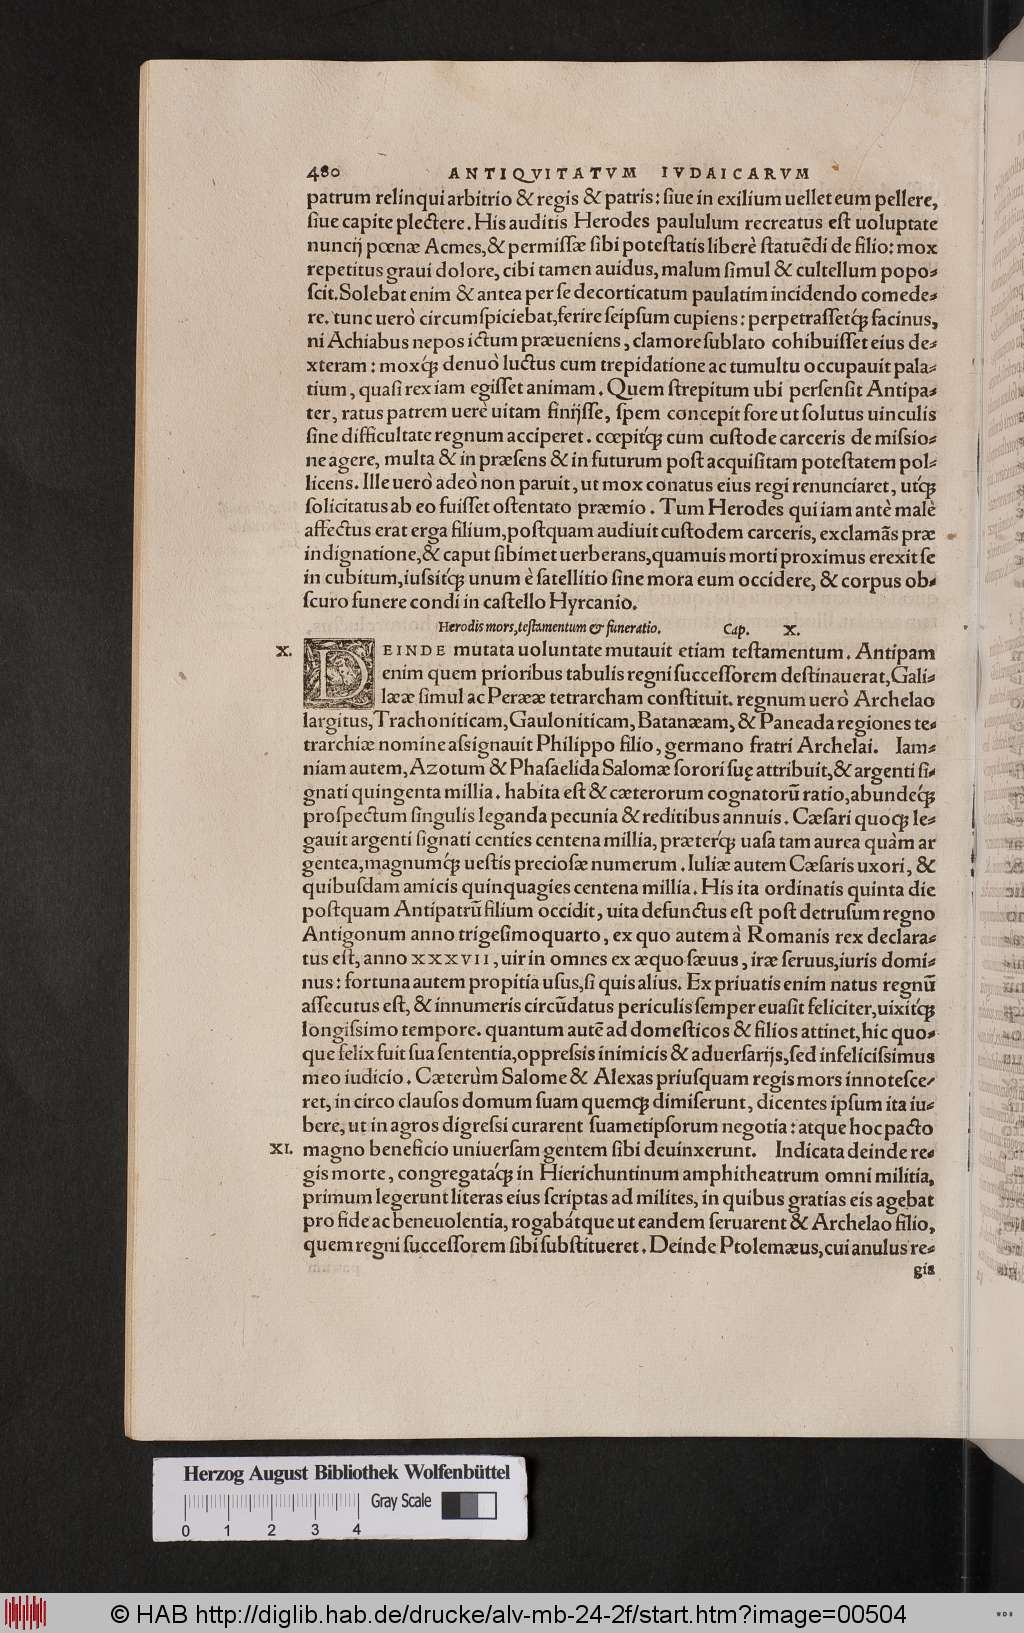 480 ANTIQVITATVM IVDAICARVM
patrum relinqui arbitrio & regis & patris: ſiue in exilium uellet eum pellere,
ſiue capite plectere. His auditis Herodes paululum recreatus eſt uoluptate
nuncij pœnæ Acmes, & permiſſæ ſibi poteſtatis liberè ſtatuẽdi de filio: mox
repetitus graui dolore, cibi tamen auidus, malum ſimul & cultellum popo-
ſcit. Solebat enim & antea per ſe decorticatum paulatim incidendo comede-
re. tunc uerò circumſpiciebat, ferire ſeipſum cupiens: perpetraſſetq́ꝫ facinus,
ni Achiabus nepos ictum præueniens, clamore ſublato cohibuiſſet eius de-
xteram: moxq́ꝫ denuò luctus cum trepidatione ac tumultu occupauit pala-
tium, quaſi rex iam egiſſet animam. Quem ſtrepitum ubi perſenſit Antipa-
ter, ratus patrem uerè uitam finijſſe, ſpem concepit fore ut ſolutus uinculis
ſine difficultate regnum acciperet. cœpitq́ꝫ cum cuſtode carceris de miſsio-
ne agere, multa & in præſens & in futurum poſt acquiſitam poteſtatem pol-
licens. Ille uerò adeò non paruit, ut mox conatus eius regi renunciaret, utq́ꝫ
ſolicitatus ab eo fuiſſet oſtentato præmio. Tum Herodes qui iam antè malè
affectus erat erga filium, poſtquam audiuit cuſtodem carceris, exclamãs præ
indignatione, & caput ſibimet uerberans, quamuis morti proximus erexit ſe
in cubitum, iuſsitq́ꝫ unum è ſatellitio ſine mora eum occidere, & corpus ob-
ſcuro funere condi in caſtello Hyrcanio.
Herodis mors, teſtamentum & funeratio. Cap. X.
X. DEINDE mutata uoluntate mutauit etiam teſtamentum. Antipam
enim quem prioribus tabulis regni ſucceſſorem deſtinauerat, Gali-
lææ ſimul ac Perææ tetrarcham conſtituit. regnum uerò Archelao
largitus, Trachoniticam, Gauloniticam, Batanæam, & Paneada regiones te-
trarchiæ nomine aſsignauit Philippo filio, germano fratri Archelai. Iam-
niam autem, Azotum & Phaſaelida Salomæ ſorori ſuę attribuit, & argenti ſi-
gnati quingenta millia. habita eſt & cæterorum cognatorũ ratio, abundeq́ꝫ
proſpectum ſingulis leganda pecunia & reditibus annuis. Cæſari quoqꝫ le-
gauit argenti ſignati centies centena millia, præterq́ꝫ uaſa tam aurea quàm ar
gentea, magnumq́ꝫ ueſtis precioſæ numerum. Iuliæ autem Cæſaris uxori, &
quibuſdam amicis quinquagies centena millia. His ita ordinatis quinta die
poſtquam Antipatrũ filium occidit, uita defunctus eſt poſt detruſum regno
Antigonum anno trigeſimoquarto, ex quo autem à Romanis rex declara-
tus eſt, anno XXXVII, uir in omnes ex æquo ſæuus, iræ ſeruus, iuris domi-
nus: fortuna autem propitia uſus, ſi quis alius. Ex priuatis enim natus regnũ
aſſecutus eſt, & innumeris circũdatus periculis ſemper euaſit feliciter, uixitq́ꝫ
longiſsimo tempore. quantum autẽ ad domeſticos & filios attinet, hic quo-
que felix fuit ſua ſententia, oppreſsis inimicis & aduerſarijs, ſed infeliciſsimus
meo iudicio. Cæterùm Salome & Alexas priuſquam regis mors innoteſce-
ret, in circo clauſos domum ſuam quemqꝫ dimiſerunt, dicentes ipſum ita iu-
bere, ut in agros digreſsi curarent ſuametipſorum negotia: atque hoc pacto
XI. magno beneficio uniuerſam gentem ſibi deuinxerunt. Indicata deinde re-
gis morte, congregataq́ꝫ in Hierichuntinum amphitheatrum omni militia,
primum legerunt literas eius ſcriptas ad milites, in quibus gratias eis agebat
pro fide ac beneuolentia, rogabátque ut eandem ſeruarent & Archelao filio,
quem regni ſucceſſorem ſibi ſubſtitueret. Deinde Ptolemæus, cui anulus re-
gis
Herzog August Bibliothek Wolfenbüttel
Gray Scale
0 1 2 3 4
© HAB http://diglib.hab.de/drucke/alv-mb-24-2f/start.htm?image=00504